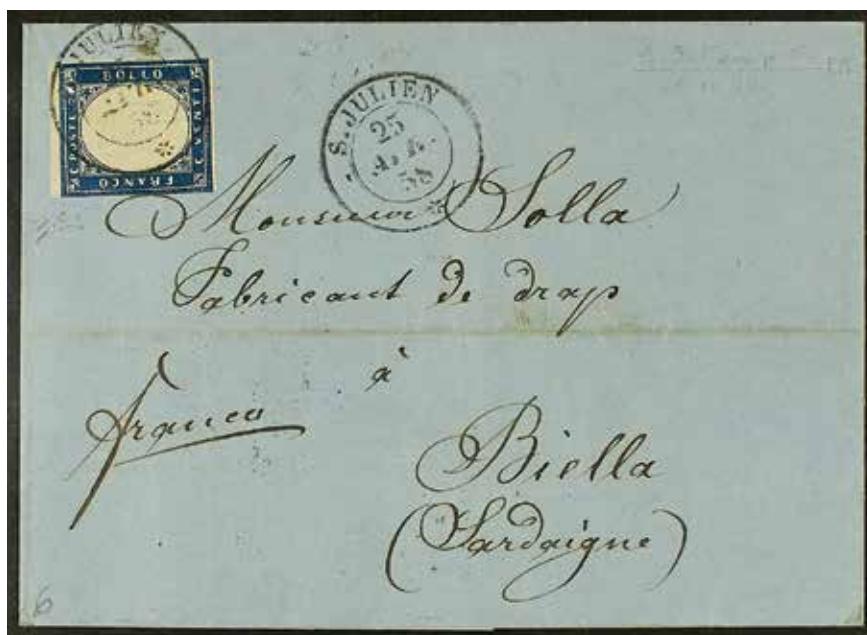 JULIEN
FRANCO
BOLLO
C. POSTE
S. JULIEN
25
58
Monsieur Solla
Fabricant de drap
à
franco
Biella
(Sardaigne)
6